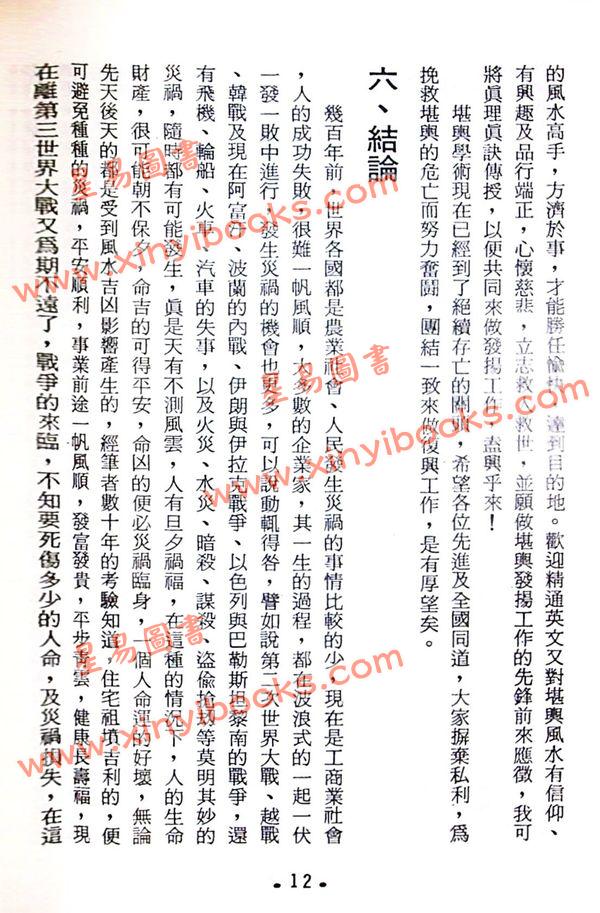 的風水高手，方濟於事，才能勝任愉快，達到目的地。歡迎精通英文又對堪輿風水有信仰、
有興趣及品行端正，心懷慈悲，立志救人救世，並願做堪輿發揚工作的先鋒前來應徵，我可
將眞理眞訣傳授，以便共同來做發揚工作，盍興乎來！
堪輿學術現在已經到了絕續存亡的關頭，希望各位先進及全國同道，大家摒棄私利，爲
挽救堪輿的危亡而努力奮鬪，團結一致來做復興工作，是有厚望矣。
六、結論
幾百年前，世界各國都是農業社會、人民發生災禍的事情比較的少，現在是工商業社會
，人的成功失敗，很難一帆風順，大多數的企業家，其一生的過程，都在波浪式的一起一伏
一發一敗中進行，發生災禍的機會也更多，可以說動輒得咎，譬如說第二次世界大戰、越戰
、韓戰及現在阿富汗、波蘭的內戰、伊朗與伊拉克戰爭、以色列與巴勒斯坦黎南的戰爭，還
有飛機、輪船、火車、汽車的失事，以及火災、水災、暗殺、謀殺、盜偷搶刼等莫明其妙的
災禍，隨時都有可能發生，眞是天有不測風雲，人有旦夕禍福，在這種的情況下，人的生命
財產，很可能朝不保夕，命吉的可得平安，命凶的便必災禍臨身，一個人命運的好壞，無論
先天後天的都是受到風水吉凶影響產生的，經筆者數十年的考驗知道，住宅祖墳吉利的，便
可避免種種的災禍，平安順利，事業前途一帆風順，發富發貴，平步青雲，健康長壽福，現
在離第三世界大戰又爲期不遠了，戰爭的來臨，不知要死傷多少的人命，及災禍損失，在這
•12•
星易圖書
www.xinyibooks.com
星易圖書
www.xinyibooks.com
星易圖書
www.xinyibooks.com
星易圖書
www.xinyibooks.com